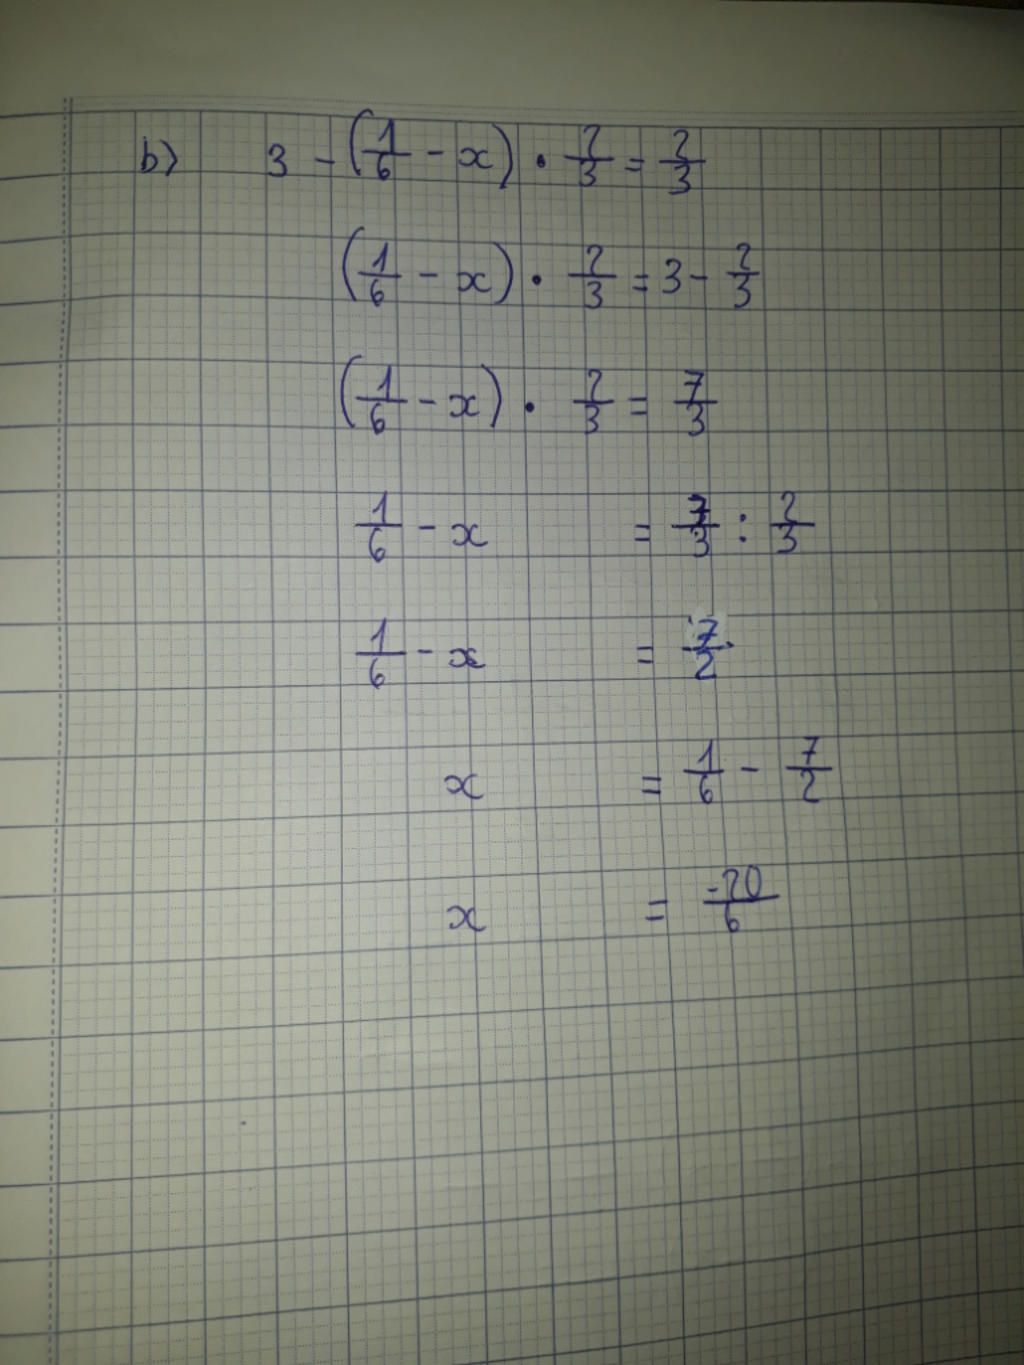 b) 3 - (1/6 - x) · 2/3 = 2/3
(1/6 - x) · 2/3 = 3 - 2/3
(1/6 - x) · 2/3 = 7/3
1/6 - x = 7/3 : 2/3
1/6 - x = 7/2
x = 1/6 - 7/2
x = -20/6